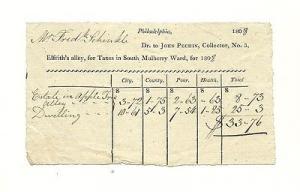 Philadelphia, 1808
Mr Fredk Schinkle
Dr. to JOHN PECHIN, Collector, No. 3,
Elfrith's alley, for Taxes in South Mulberry Ward, for 1808
City. County. Poor. Health.
$ $ $ $ $
Estate in Apple Tree 3-72 1-75 2-63 -63 8-73
Alley
Dwelling 10-61 5-3 7-54 1-25 25-3
$33-76